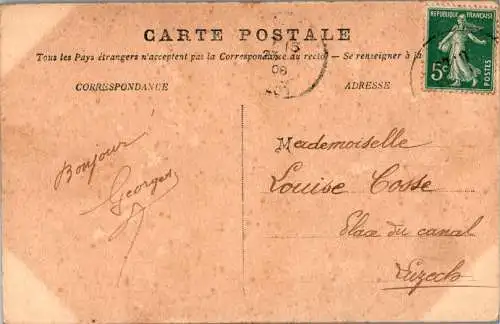 CARTE POSTALE
Tous les Pays étrangers n'acceptent pas la Correspondance au recto — Se renseigner à la
CORRESPONDANCE
ADRESSE
REPUBLIQUE FRANÇAISE
5c
POSTES
08
Bonjour
Georges
Mademoiselle
Louise Cosse
Place du canal
Luzech